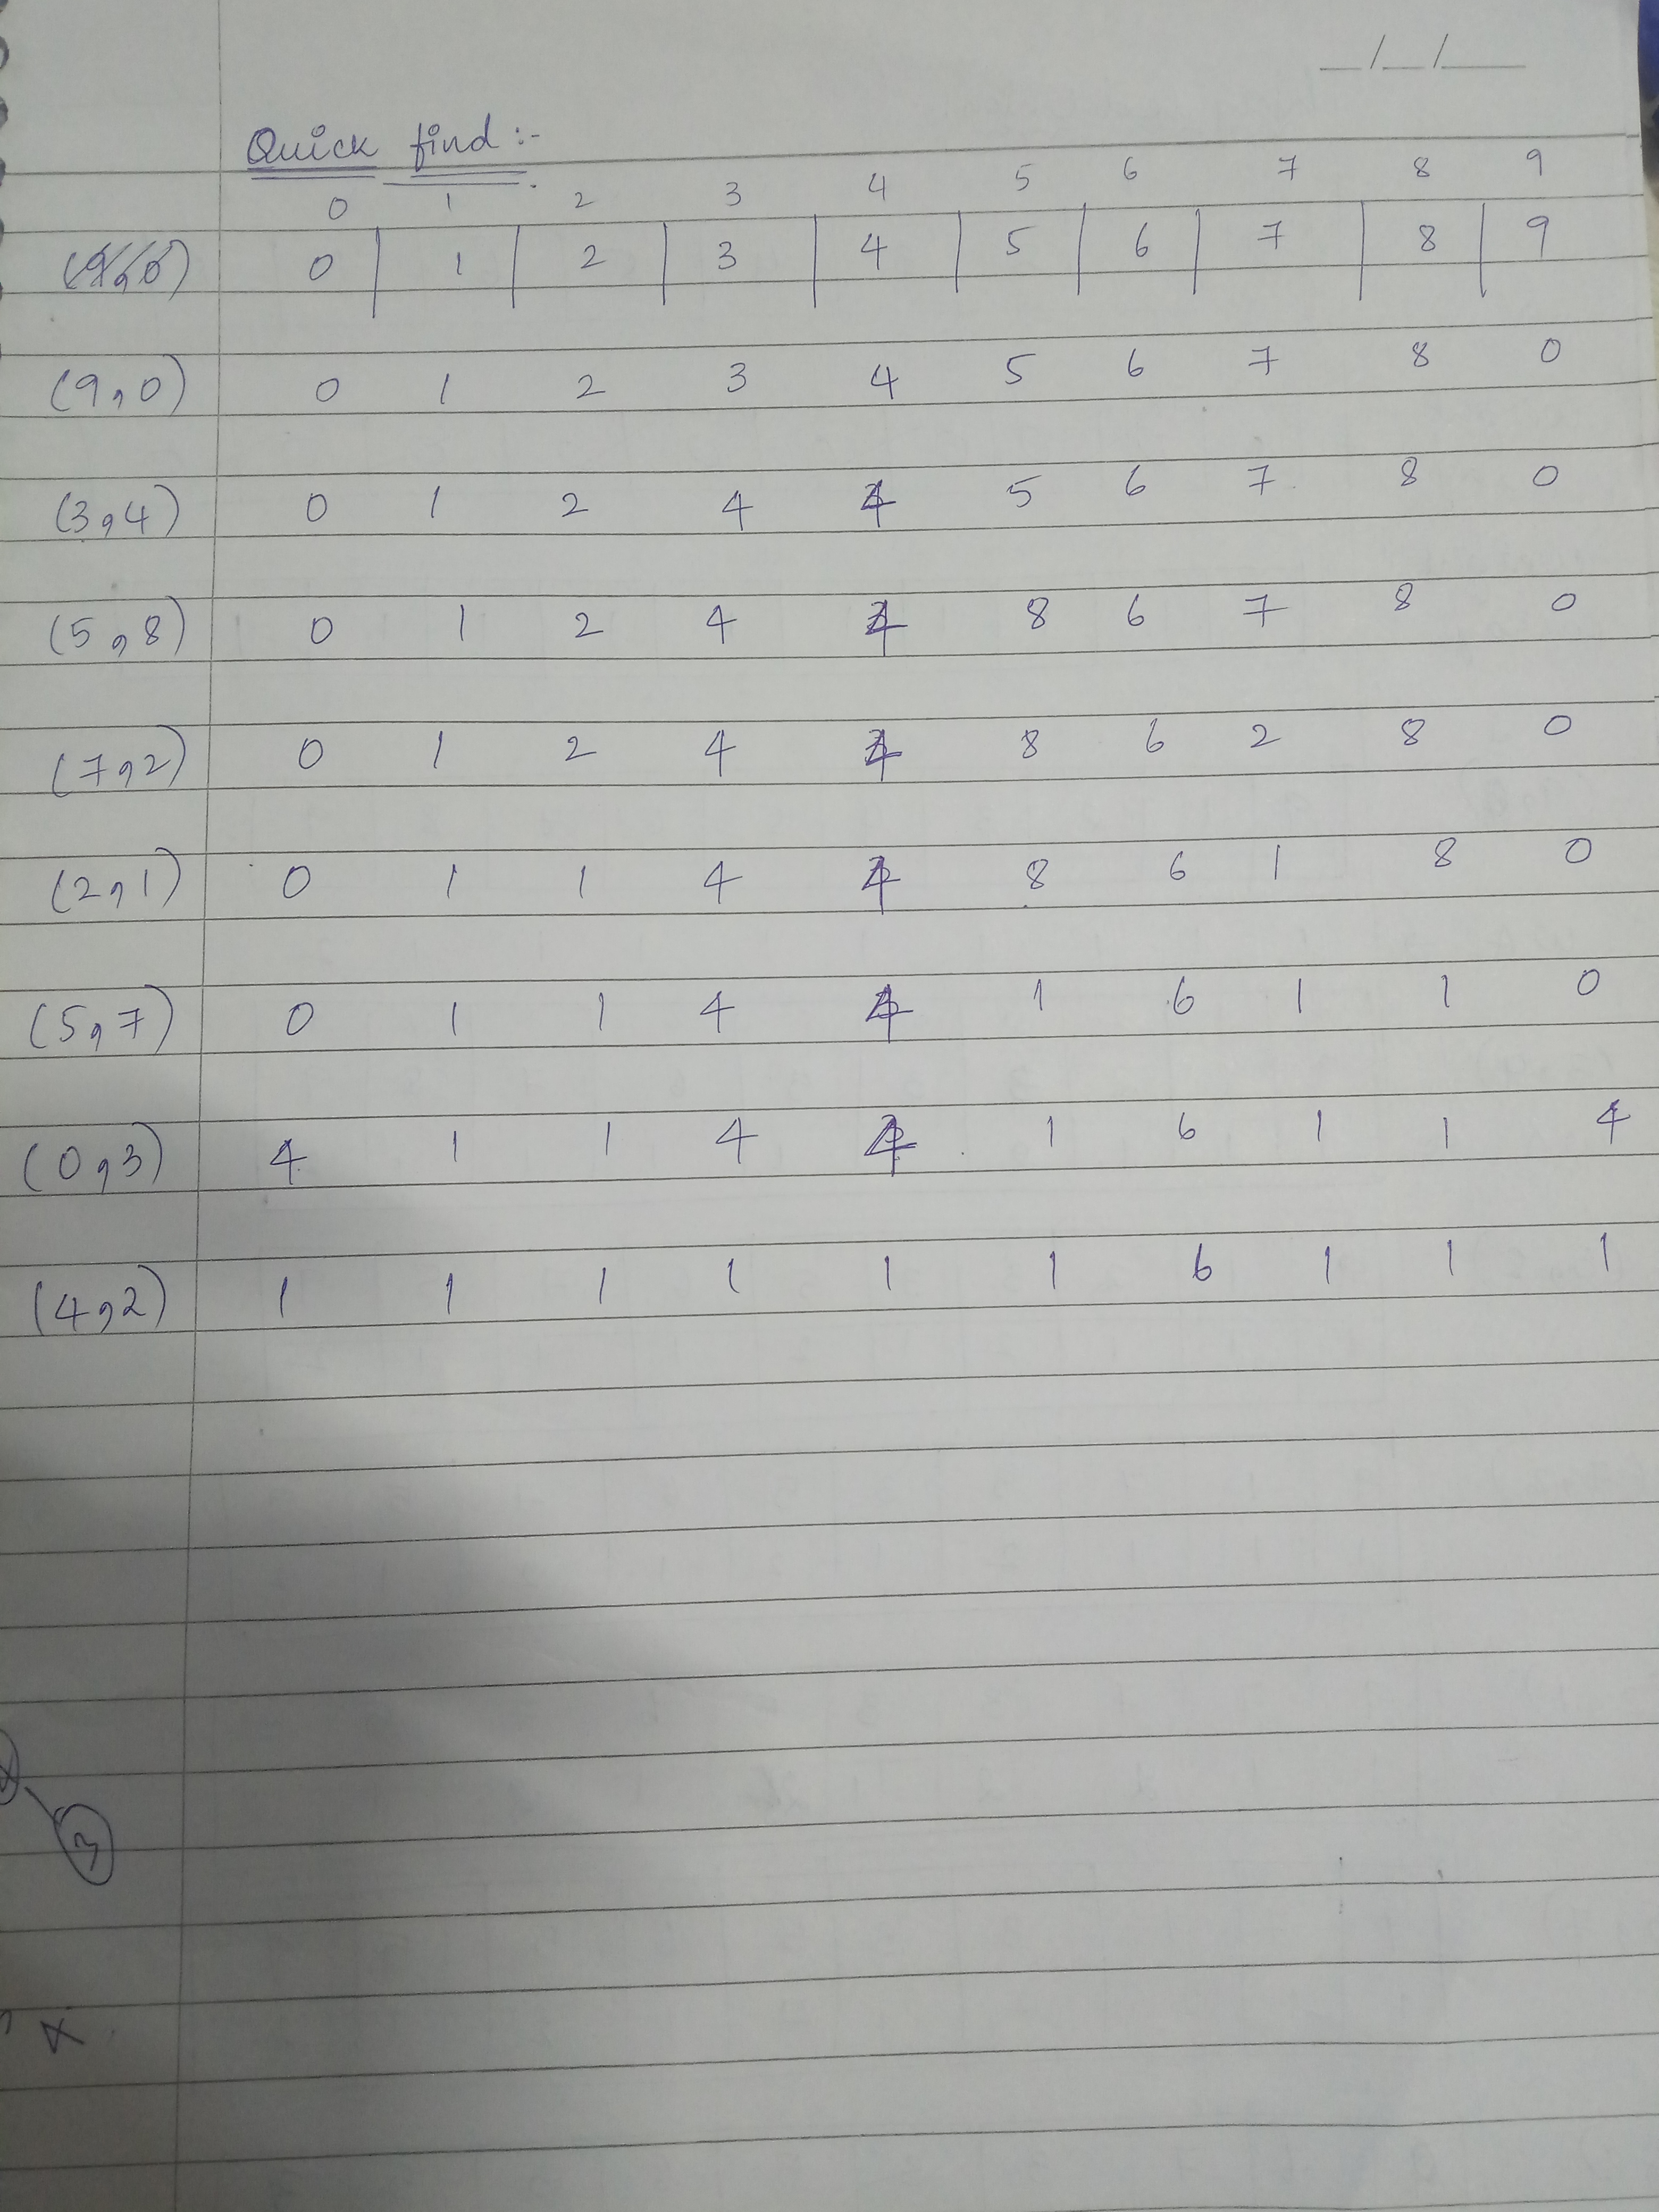 __/__/____
Quick find :-
0 1 2 3 4 5 6 7 8 9
(9,0) 0 1 2 3 4 5 6 7 8 9
(9,0) 0 1 2 3 4 5 6 7 8 0
(3,4) 0 1 2 4 4 5 6 7 8 0
(5,8) 0 1 2 4 4 8 6 7 8 0
(7,2) 0 1 2 4 4 8 6 2 8 0
(2,1) 0 1 1 4 4 8 6 1 8 0
(5,7) 0 1 1 4 4 1 6 1 1 0
(0,3) 4 1 1 4 4 1 6 1 1 4
(4,2) 1 1 1 1 1 1 6 1 1 1
3